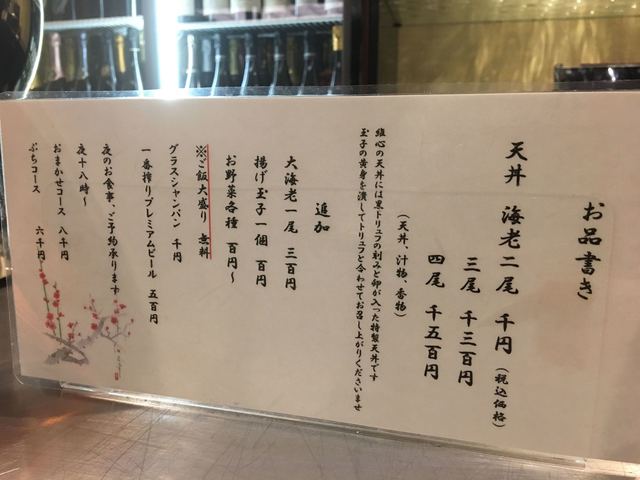 お品書き
天丼 海老二尾 千円 (税込価格)
三尾 千三百円
四尾 千五百円
(天丼、汁物、香物)
雄心の天丼には黒トリュフの刻みと卵が入った特製天丼です
玉子の黄身を潰してトリュフと合わせてお召し上がりくださいませ
追加
大海老一尾 三百円
揚げ玉子一個 百円
お野菜各種 百円~
※ご飯大盛り 無料
グラスシャンパン 千円
一番搾りプレミアムビール 五百円
夜のお食事、ご予約承ります
夜十八時~
おまかせコース 八千円
ぷちコース 六千円